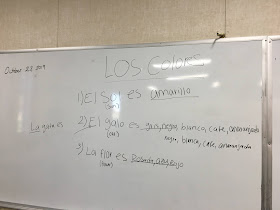 October 23, 2019
LOS Colores
1) El Sol es amarillo
(sun)
La gata es
2) El gato es gris, negro, blanco, cafe, anaranjado
(cat)
negra, blanca, cafe, anaranjada
3) La Flor es Rosada, roja
(flower)